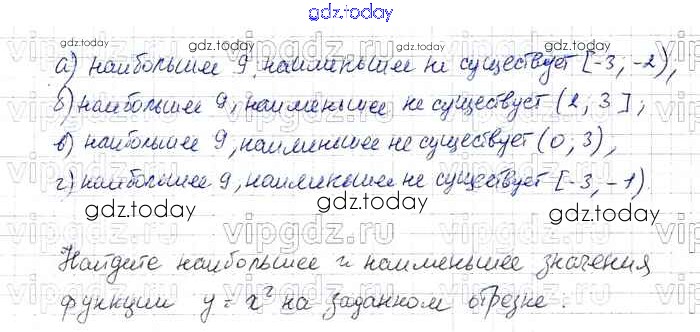 gdz.today
gdz.today gdz.today
а) наибольшее 9, наименьшее не существует [-3, -2),
б) наибольшее 9, наименьшее не существует (2, 3];
в) наибольшее 9, наименьшее не существует (0; 3),
г) наибольшее 9, наименьшее не существует [-3, -1).
gdz.today gdz.today gdz.today
Найдите наибольшее и наименьшее значения
функции y = x² на заданном отрезке.